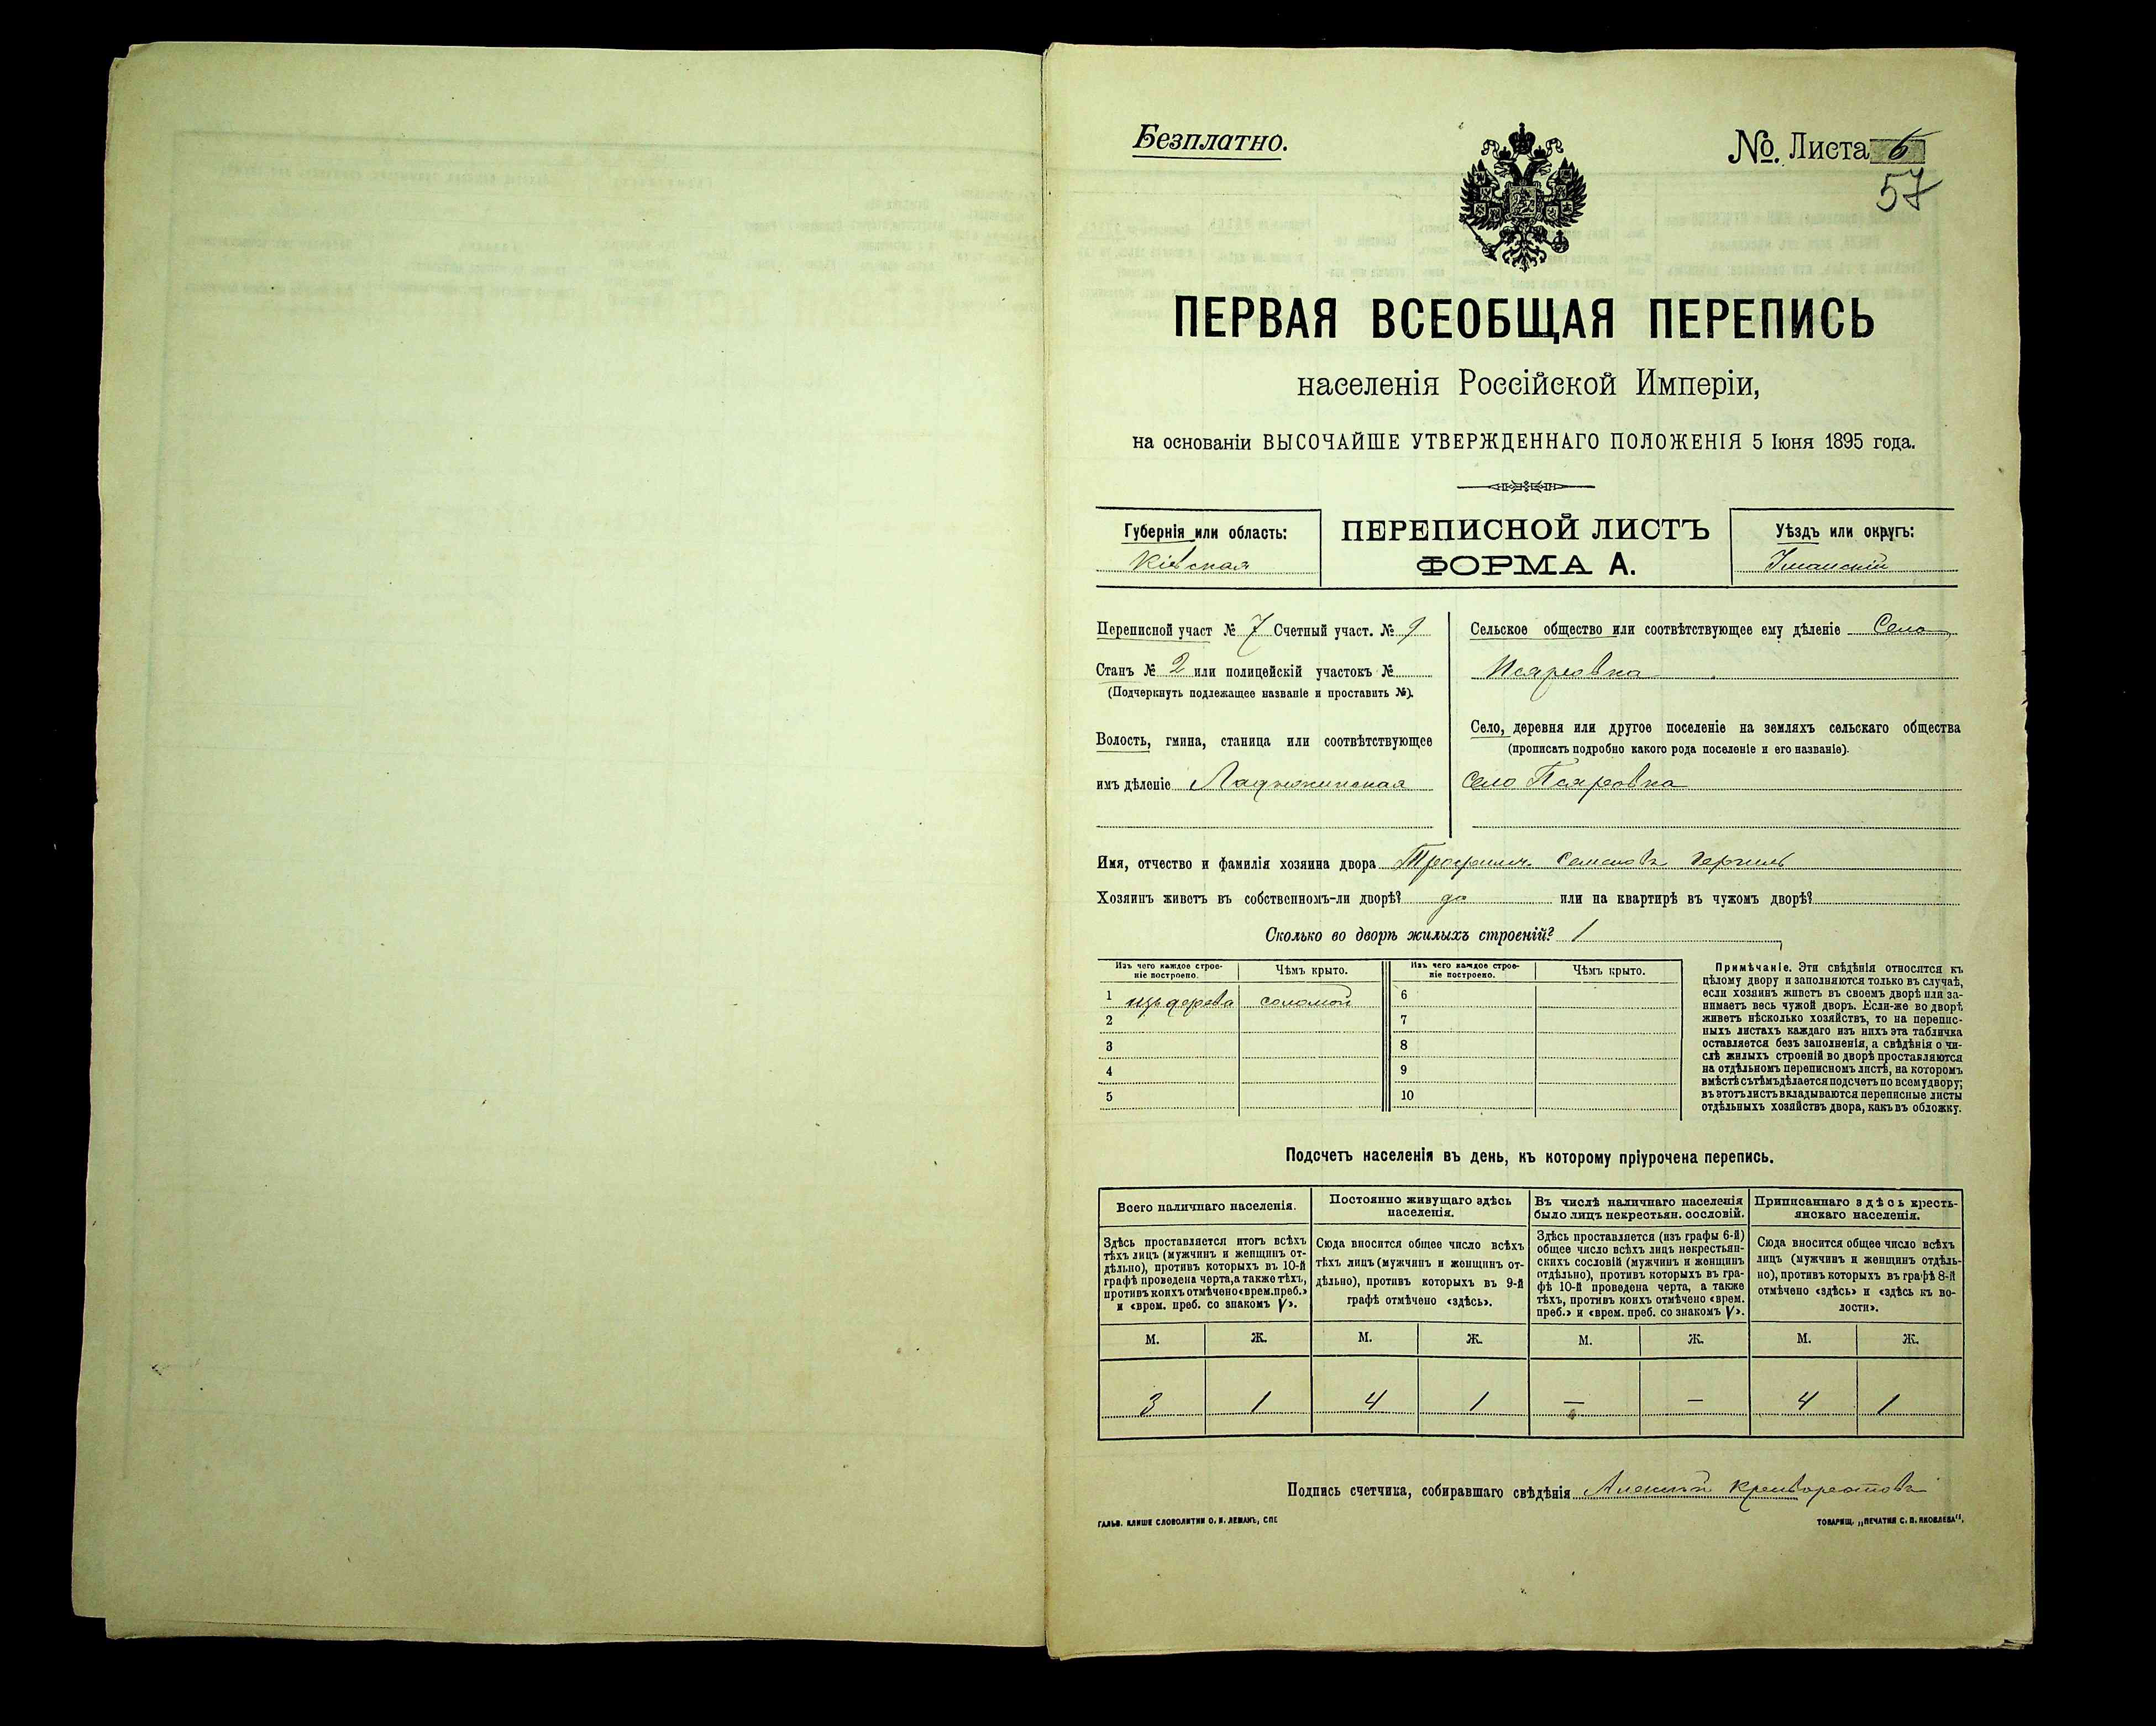 Безплатно.
№. Листа 6
57
ПЕРВАЯ ВСЕОБЩАЯ ПЕРЕПИСЬ
населенія Россійской Имперіи,
на основаніи ВЫСОЧАЙШЕ УТВЕРЖДЕННАГО ПОЛОЖЕНІЯ 5 Іюня 1895 года.
Губернія или область:
Кіевская
ПЕРЕПИСНОЙ ЛИСТЪ
ФОРМА А.
Уѣздъ или округъ:
Уманскій
Переписной участ № 7 Счетный участ. № 9
Станъ № 2 или полицейскій участокъ №
(Подчеркнуть подлежащее названіе и проставить №).
Волость, гмина, станица или соотвѣтствующее
имъ дѣленіе Ладыжинская
Сельское общество или соотвѣтствующее ему дѣленіе Село
Псяровка
Село, деревня или другое поселеніе на земляхъ сельскаго общества
(прописать подробно какого рода поселеніе и его названіе).
Село Псяровка
Имя, отчество и фамилія хозяина двора Трофимъ Семеновъ
Хозяинъ живетъ въ собственномъ-ли дворѣ? да или на квартирѣ въ чужомъ дворѣ?
Сколько во дворѣ жилыхъ строеній? 1
Изъ чего каждое строе-
ніе построено.
Чѣмъ крыто.
Изъ чего каждое строе-
ніе построено.
Чѣмъ крыто.
1 изъ дерева соломой 6
2 7
3 8
4 9
5 10
Примѣчаніе. Эти свѣдѣнія относятся къ
цѣлому двору и заполняются только въ случаѣ,
если хозяинъ живетъ въ своемъ дворѣ или за-
нимаетъ весь чужой дворъ. Если-же во дворѣ
живетъ нѣсколько хозяйствъ, то на перепис-
ныхъ листахъ каждаго изъ нихъ эта табличка
оставляется безъ заполненія, а свѣдѣнія о чи-
слѣ жилыхъ строеній во дворѣ проставляются
на отдѣльномъ переписномъ листѣ, на которомъ
вмѣстѣ съ тѣмъ дѣлается подсчетъ по всему двору;
въ этотъ листъ вкладываются переписные листы
отдѣльныхъ хозяйствъ двора, какъ въ обложку.
Подсчетъ населенія въ день, къ которому пріурочена перепись.
Всего наличнаго населенія.
Здѣсь проставляется итогъ всѣхъ
тѣхъ лицъ (мужчинъ и женщинъ от-
дѣльно), противъ которыхъ въ 10-й
графѣ проведена черта, а также тѣхъ,
противъ коихъ отмѣчено «врем. преб.»
и «врем. преб. со знакомъ V».
Постоянно живущаго здѣсь
населенія.
Сюда вносится общее число всѣхъ
тѣхъ лицъ (мужчинъ и женщинъ от-
дѣльно), противъ которыхъ въ 9-й
графѣ отмѣчено «здѣсь».
Въ числѣ наличнаго населенія
было лицъ некрестьян. сословій.
Здѣсь проставляется (изъ графы 6-й)
общее число всѣхъ лицъ некрестьян-
скихъ сословій (мужчинъ и женщинъ
отдѣльно), противъ которыхъ въ гра-
фѣ 10-й проведена черта, а также
тѣхъ, противъ коихъ отмѣчено «врем.
преб.» и «врем. преб. со знакомъ V».
Приписаннаго здѣсь кресть-
янскаго населенія.
Сюда вносится общее число всѣхъ
лицъ (мужчинъ и женщинъ отдѣль-
но), противъ которыхъ въ графѣ 8-й
отмѣчено «здѣсь» и «здѣсь къ во-
лости».
М. Ж. М. Ж. М. Ж. М. Ж.
3 1 4 1 — — 4 1
Подпись счетчика, собиравшаго свѣдѣнія Алексѣй
ГАЛЬВ. КЛИШЕ СЛОВОЛИТНИ О. И. ЛЕМАНЪ, СПБ
ТОВАРИЩ. „ПЕЧАТНЯ С. П. ЯКОВЛЕВА“.